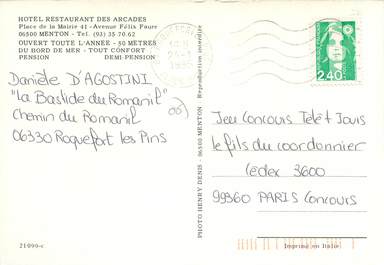 HOTEL RESTAURANT DES ARCADES
Place de la Mairie 41 - Avenue Félix Faure
06500 MENTON - Tel. (93) 35 70 62
OUVERT TOUTE L'ANNEE - 50 METRES
DU BORD DE MER - TOUT CONFORT
PENSION DEMI-PENSION
Danièle D'AGOSTINI
"La Bastide du Romanil"
Chemin du Romanil
06330 Roquefort les Pins
(06)
21090-c
PHOTO HENRY DENIS - 06500 MENTON - Reproduction interdite
2,40
Jeu Concours Télé 7 Jours
le fils du cordonnier
Cédex 3600
99360 PARIS Concours
Imprimé en Italie